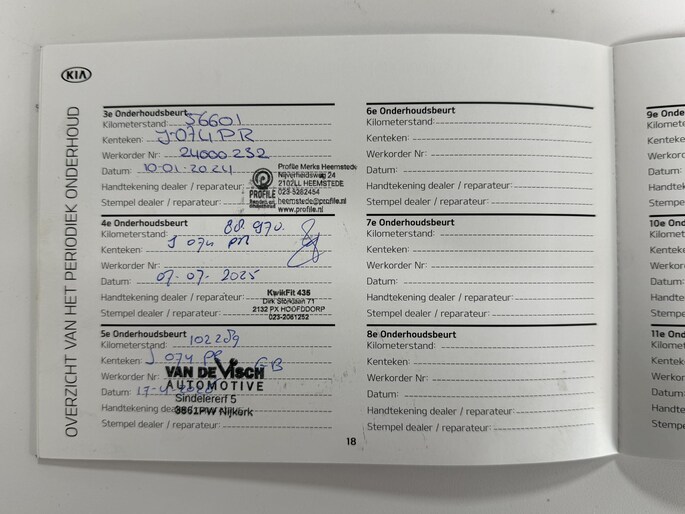 KIA
OVERZICHT VAN HET PERIODIEK ONDERHOUD
3e Onderhoudsbeurt
Kilometerstand: 56601
Kenteken: J-074PR
Werkorder Nr: 24000.232
Datum: 10-01-2024
Handtekening dealer / reparateur:
Stempel dealer / reparateur:
PROFILE
Profile Merks Heemstede
Nijverheidsweg 24
2102LL HEEMSTEDE
023-5282454
heemstede@profile.nl
www.profile.nl
4e Onderhoudsbeurt
Kilometerstand: 88.970.
Kenteken: J 074 PR
Werkorder Nr:
Datum: 07-07-2025
Handtekening dealer / reparateur:
Stempel dealer / reparateur:
KwikFit 436
Dirk Storklaan 71
2132 PX HOOFDDORP
023-2061252
5e Onderhoudsbeurt
Kilometerstand: 102289
Kenteken: J 074 PR
Werkorder Nr:
Datum: 17-4-
Handtekening dealer / reparateur:
Stempel dealer / reparateur:
VAN DE VISCH
AUTOMOTIVE
Sindelererf 5
3861PW Nijkerk
6e Onderhoudsbeurt
Kilometerstand:
Kenteken:
Werkorder Nr:
Datum:
Handtekening dealer / reparateur:
Stempel dealer / reparateur:
7e Onderhoudsbeurt
Kilometerstand:
Kenteken:
Werkorder Nr:
Datum:
Handtekening dealer / reparateur:
Stempel dealer / reparateur:
8e Onderhoudsbeurt
Kilometerstand:
Kenteken:
Werkorder Nr:
Datum:
Handtekening dealer / reparateur:
Stempel dealer / reparateur:
18
9e Onder
Kilomete
Kenteke
Werkor
Datum:
Handte
Stempe
10e On
Kilome
Kente
Werko
Datur
Hand
Stem
11e O
Kilon
Kent
Wer
Dat
Han
Ste